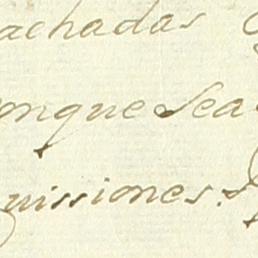 achadas
onque Sea
uissiones.